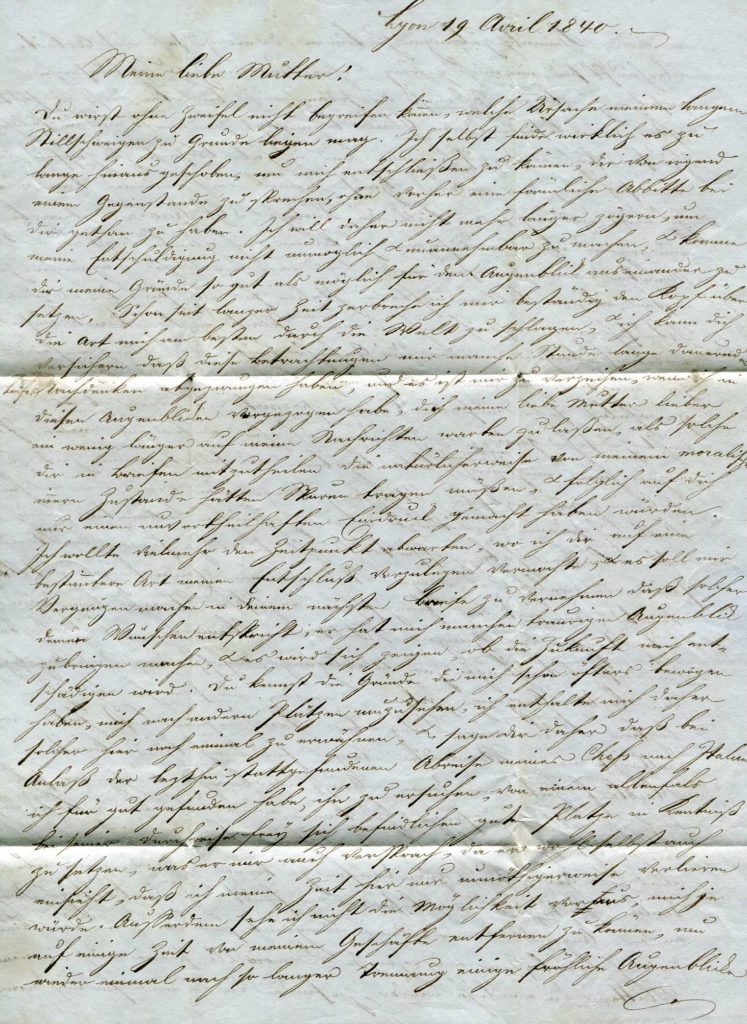 Lyon 19 April 1840.
Meine liebe Mutter!
Du wirst ohne Zweifel nicht begreifen können, welche Ursache meinem langem
Stillschweigen zu Grunde liegen mag. Ich selbst finde wirklich es zu
lange hinaus geschoben, um mich entschließen zu können, dir von irgend
einem Gegenstande zu sprechen, ohne vorher eine förmliche Abbitte bei
dir gethan zu haben. Ich will daher nicht mehr länger zögern, um
meine Entschuldigung nicht unmöglich & unannehmbar zu machen, & komme
dir meine Gründe so gut als möglich für den Augenblick auseinander zu
setzen. Schon seit langer Zeit zerbreche ich mir beständig den Kopf über
die Art mich am besten durch die Welt zu schlagen, & ich kann dich
versichern daß diese Betrachtungen mir manche Stunde lange dauernd
Nachdenken abgezwungen haben, und es ist mir zu verzeihen, wenn ich in
diesen Augenblicken vorgezogen habe, dich meine liebe Mutter lieber
ein wenig länger auf meine Nachrichten warten zu laßen, als solche
dir in Briefen mitzutheilen die natürlicherweise von meinem moralisch
innern Zustande hätten Spuren tragen müßen, & folglich auf dich
nur einen unvortheilhaften Eindruck gemacht haben würden.
Ich wollte vielmehr den Zeitpunkt abwarten, wo ich dir auf eine
bestimmtere Art meinen Entschluß vorzulegen vermochte, & es soll mir
Vergnügen machen in deinem nächsten Briefe zu vernehmen daß solcher
deinen Wünschen entspricht; er hat mich manchen traurigen Augenblick
zubringen machen, & es wird sich zeigen, ob die Zukunft mich ent-
schädigen wird. Du kennst die Gründe die mich schon öfters bewogen
haben, mich nach andern Plätzen umzusehen, ich enthalte mich daher
solcher hier noch einmal zu erwähnen, & sage dir daher daß bei
Anlaß der letzthin stattgefundenen Abreise meines Chefs nach Italien
ich für gut gefunden habe, ihn zu ersuchen, von einem allenfalls
bei seiner Durchreise frey sich befindlichen guten Platze in Kentniß
zu setzen, was er mir auch versprach, da er wohl selbst auch
einsieht, daß ich meine Zeit hier nur unnöthigerweise verlieren
würde. Außerdem sehe ich nicht die Möglichkeit voraus, mich je
auf einige Zeit von meinem Geschäfte entfernen zu können, um
wieder einmal nach so langer Trennung einige fröhliche Augenblicke